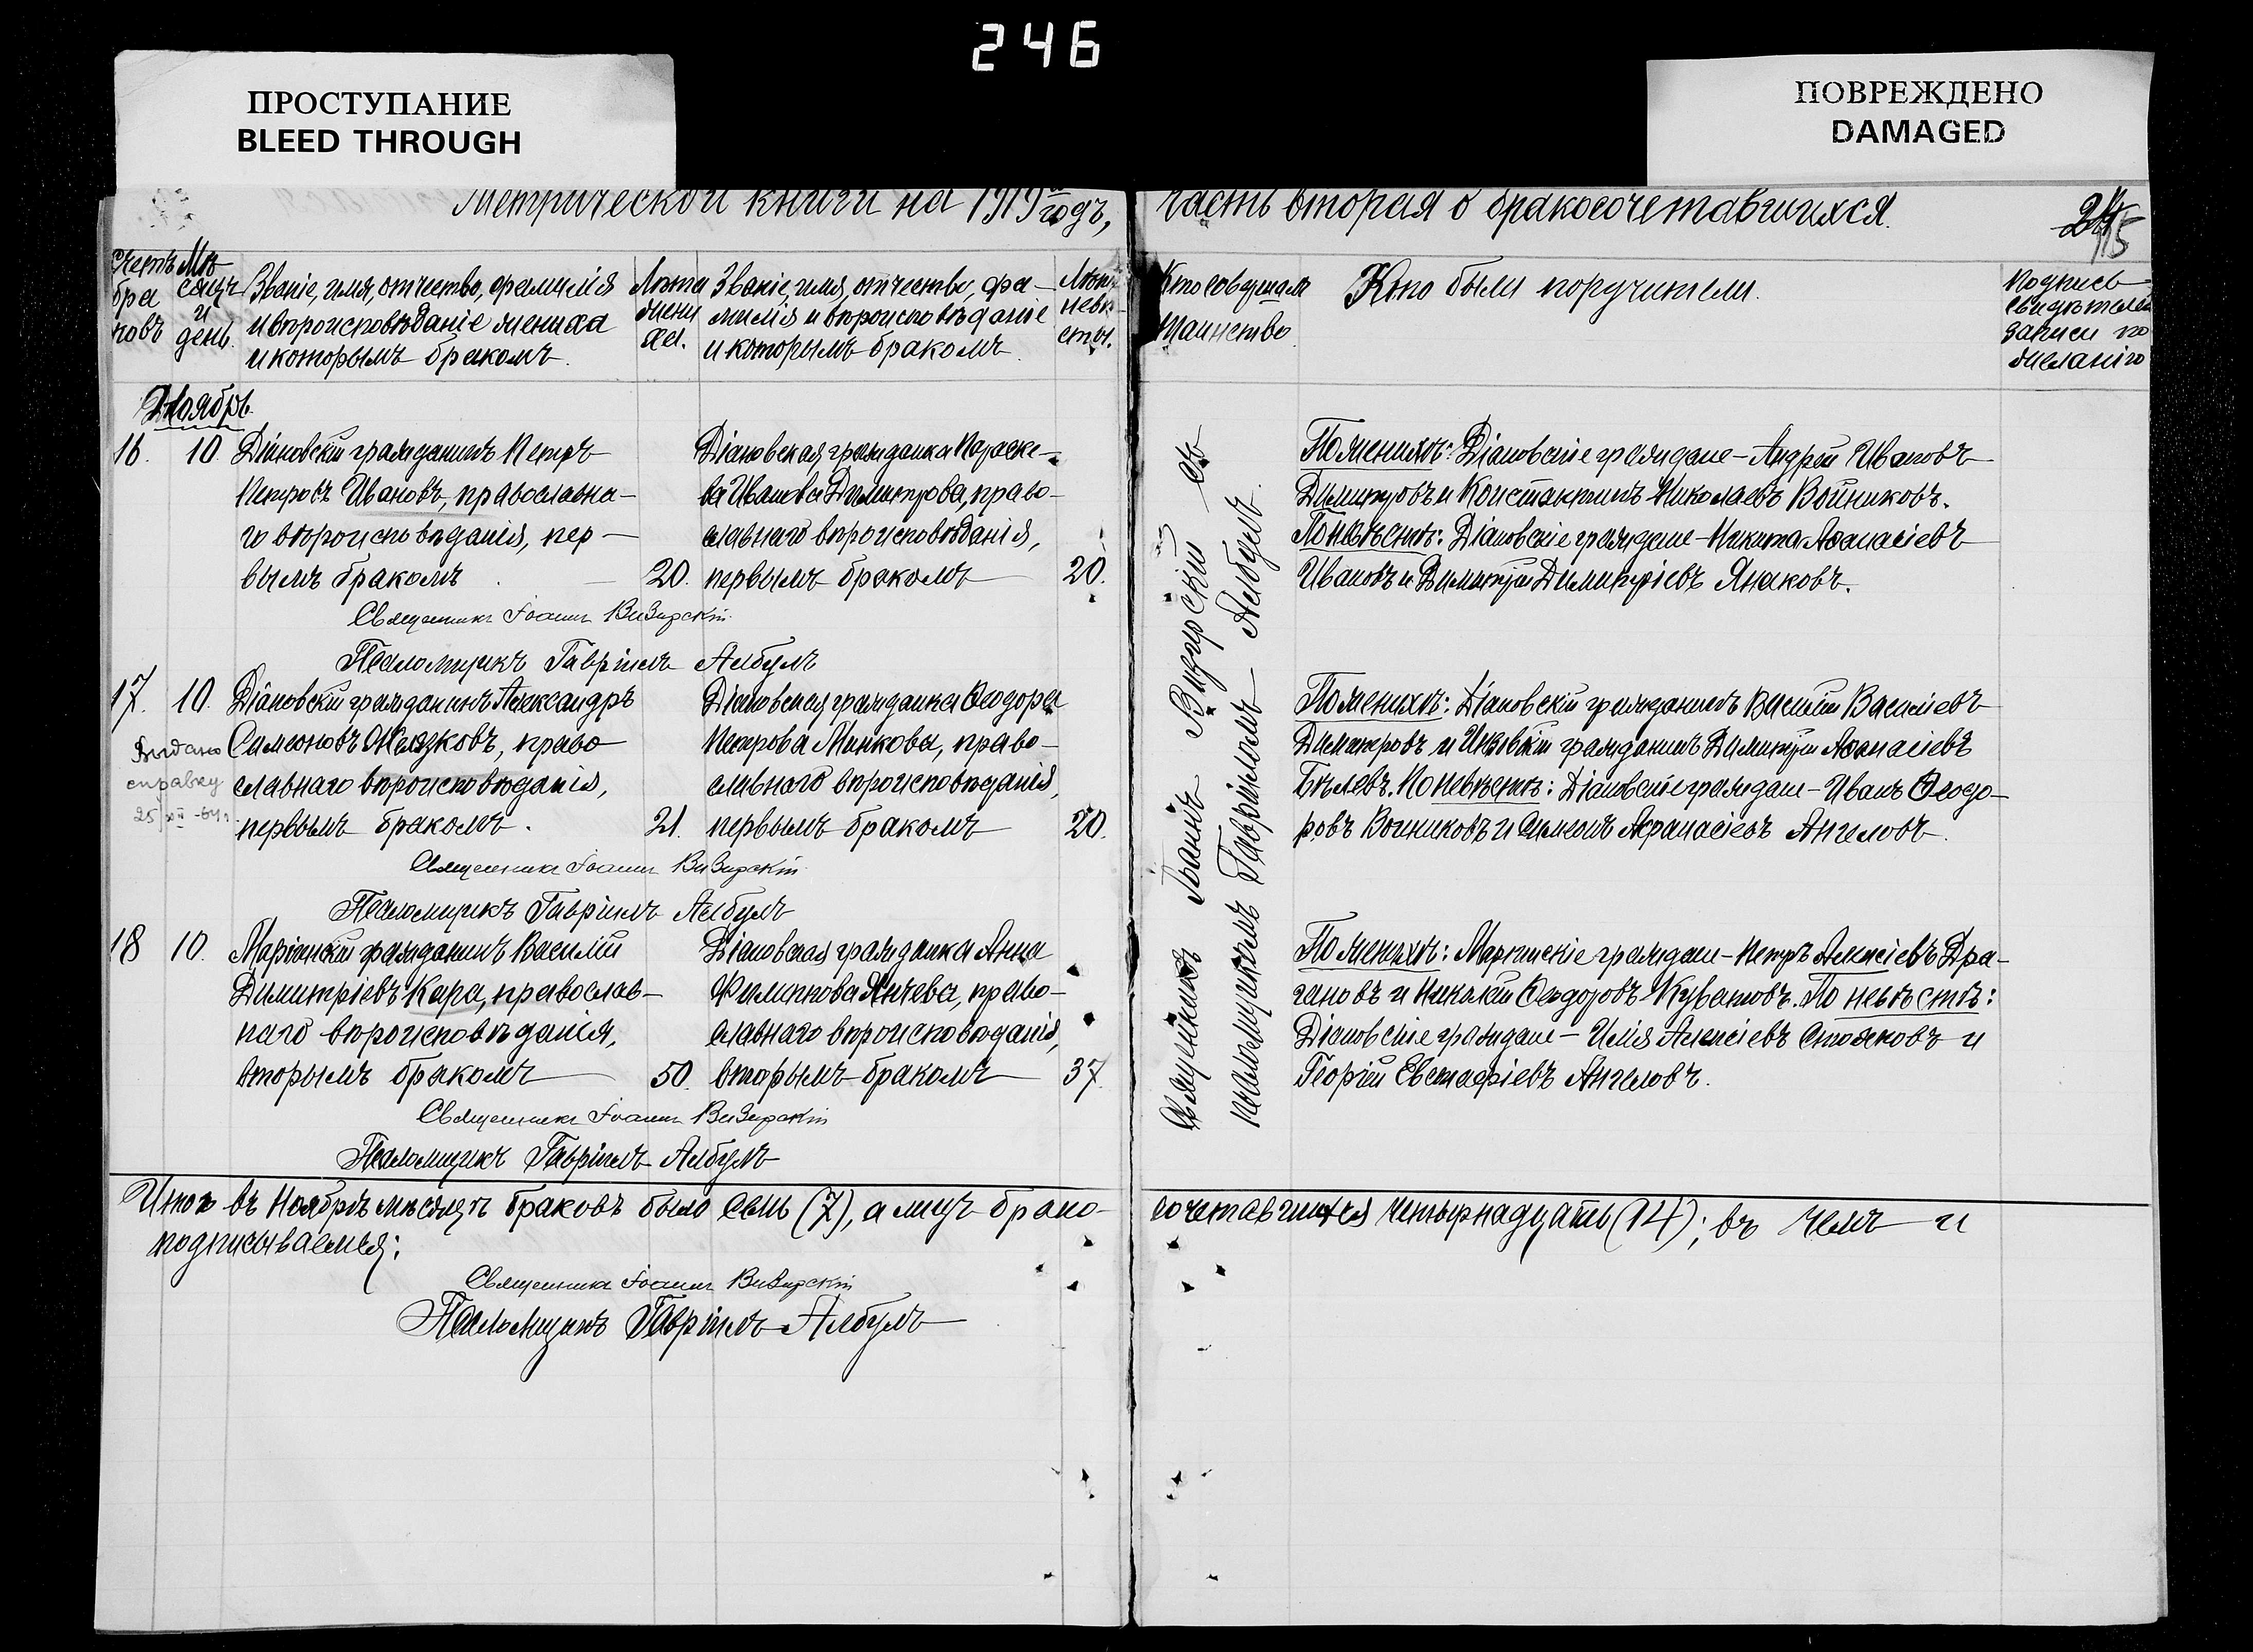 246
ПРОСТУПАНИЕ
BLEED THROUGH
ПОВРЕЖДЕНО
DAMAGED
Метрической книги на 1919й годъ,
Часть вторая о бракосочетавшихся.
115
Счетъ браковъ
Мѣсяцъ и день.
Званіе, имя, отчество, фамилія
и вѣроисповѣданіе жениха
и которымъ бракомъ.
Лѣта жениха.
Званіе, имя, отчество, фа-
милія и вѣроисповѣданіе
и которымъ бракомъ.
Лѣта невѣсты.
Кто совершалъ
таинство.
Кто были поручители.
Подпись
свидѣтелей
записи по
желанію
Ноябрь.
16. 10. Діановскій гражданинъ Петръ
Петровъ Ивановъ, православна-
го вѣроисповѣданія, пер-
вымъ бракомъ 20.
Діановская гражданка Параске-
ва Иванова Димитрова, право-
славнаго вѣроисповѣданія,
первымъ бракомъ 20.
По женихѣ: Діановскіе граждане - Андрей Ивановъ
Димитровъ и Константинъ Николаевъ Войниковъ.
По невѣстѣ: Діановскіе граждане - Никита Аѳанасіевъ
Ивановъ и Димитрій Димитріевъ Янаковъ.
Священникъ Іоаннъ Визирскій
Псаломщикъ Гавріилъ Албулъ
17. 10. Діановскій гражданинъ Александръ
Симеоновъ Желязковъ, право
славнаго вѣроисповѣданія,
первымъ бракомъ. 21.
Выдано
справку
25/XII-64г.
Діановская гражданка Ѳеодора
Петрова Минкова, право-
славнаго вѣроисповѣданія,
первымъ бракомъ 20.
По женихѣ: Діановскій гражданинъ Василій Василіевъ
Димитровъ и гражданинъ Димитрій Аѳанасіевъ
Бѣлевъ. По невѣстѣ: Діановскіе граждане - Иванъ Ѳеодо-
ровъ Войниковъ и Симеонъ Афанасіевъ Ангеловъ.
Священникъ Іоаннъ Визирскій
Псаломщикъ Гавріилъ Албулъ
18 10. Маріинскій гражданинъ Василій
Димитріевъ Кара, православ-
наго вѣроисповѣданія,
вторымъ бракомъ 50.
Діановская гражданка Анна
Филиппова Янчева, право-
славнаго вѣроисповѣданія,
вторымъ бракомъ 37.
По женихѣ: Маріинскіе граждане - Петръ Алексіевъ Дра-
гановъ и Николай Ѳеодоровъ Куватовъ. По невѣстѣ:
Діановскіе граждане - Илія Алексіевъ Стояковъ и
Георгій Евстафіевъ Ангеловъ.
Священникъ Іоаннъ Визирскій
Псаломщикъ Гавріилъ Албулъ
Священникъ Іоаннъ Визирскій съ
псаломщикомъ Гавріиломъ Албулъ.
Итого въ Ноябрѣ мѣсяцѣ браковъ было семь (7), а лицъ брако-
сочетавшихся четырнадцать (14); въ чемъ и
подписываемся:
Священникъ Іоаннъ Визирскій
Псаломщикъ Гавріилъ Албулъ